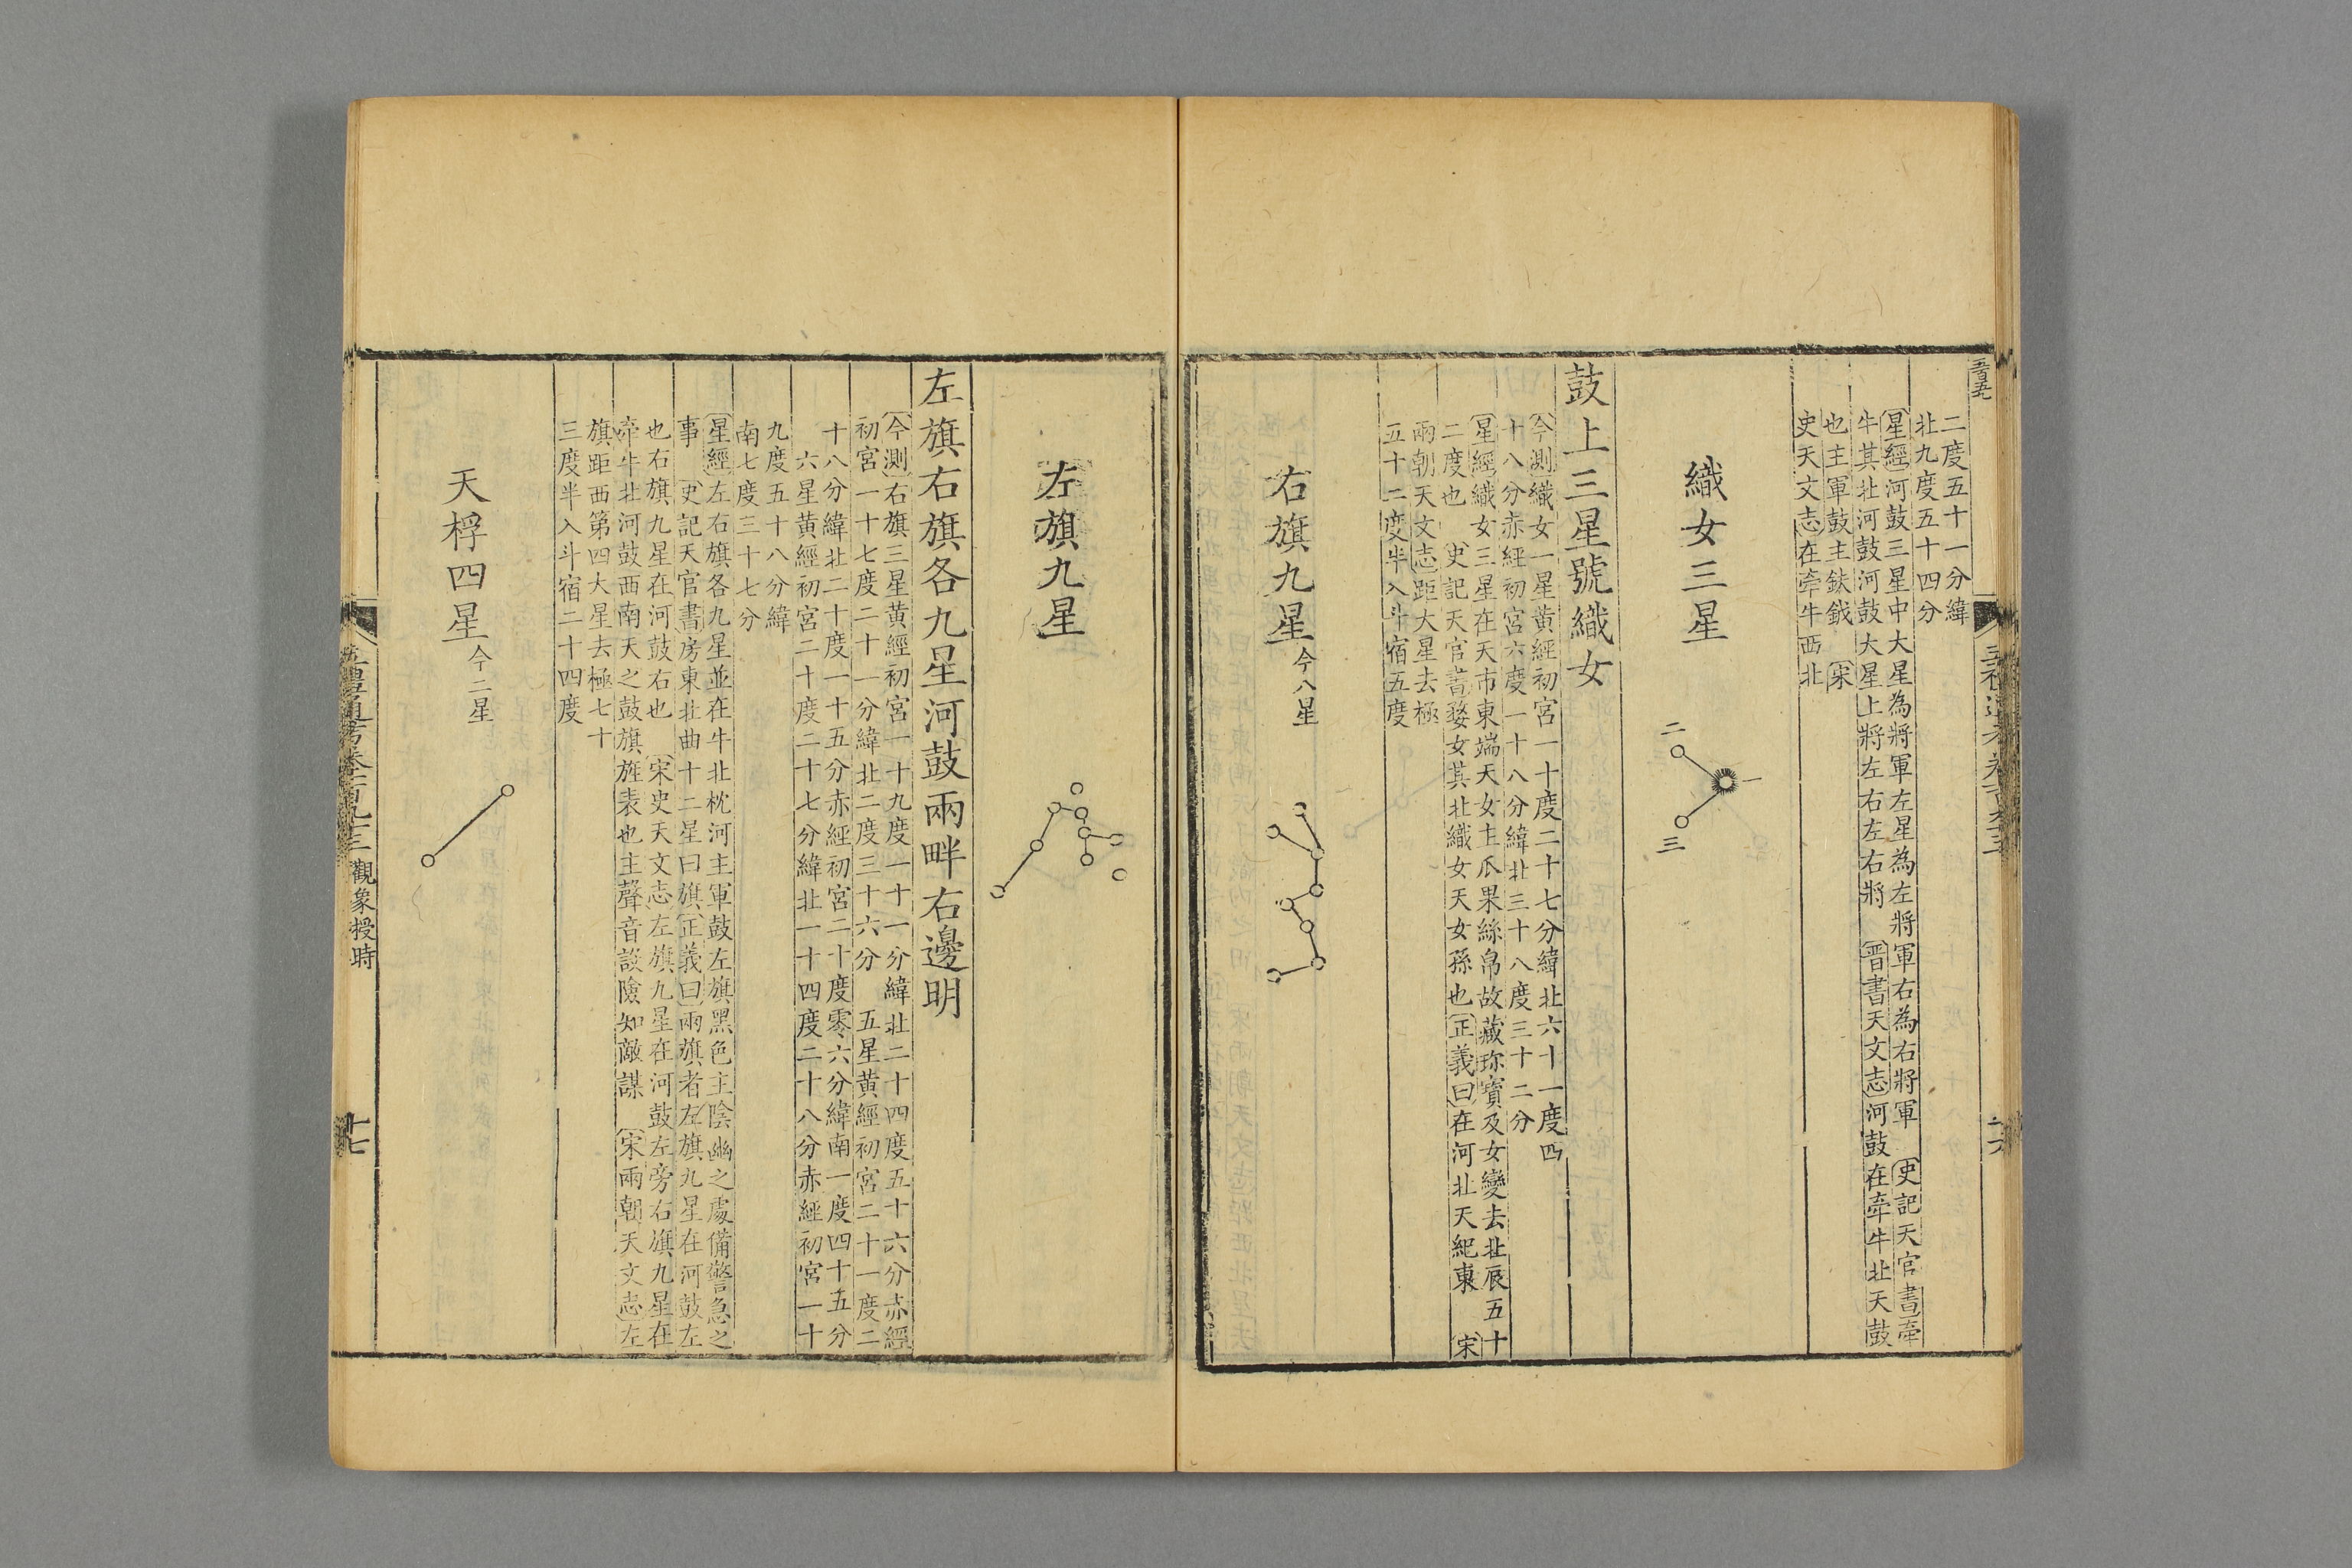 二度五十一分緯
北九度五十四分
星經河鼓三星中大星為將軍左星為左將軍右為右將軍 史記天官書牽
牛其北河鼓河鼓大星上將左右左右將 晉書天文志河鼓在牽牛北天鼓
也主軍鼓主鈇鉞 宋
史天文志在牽牛西北
織女三星
二
三
鼓上三星號織女
今測織女一星黃經初宮一十度二十七分緯北六十一度四
十八分赤經初宮六度一十八分緯北三十八度三十二分
星經織女三星在天市東端天女主瓜果絲帛故藏珎寶及女變去北辰五十
二度也 史記天官書婺女其北織女天女孫也正義曰在河北天紀東 宋
兩朝天文志距大星去極
五十二度半入斗宿五度
右旗九星今八星
左旗九星
左旗右旗各九星河鼓兩畔右邊明
今測右旗三星黃經初宮一十九度一十一分緯北二十四度五十六分赤經
初宮一十七度二十一分緯北二度三十六分 五星黃經初宮二十一度二
十八分緯北二十度一十五分赤經初宮二十度零六分緯南一度四十五分
六星黃經初宮二十度二十七分緯北一十四度二十八分赤經初宮一十
九度五十八分緯
南七度三十七分
星經左右旗各九星並在牛北枕河主軍鼓左旗黑色主陰幽之處備警急之
事 史記天官書房東北曲十二星曰旗正義曰兩旗者左旗九星在河鼓左
也右旗九星在河鼓右也 宋史天文志左旗九星在河鼓左旁右旗九星在
牽牛北河鼓西南天之鼓旗旌表也主聲音設險知敵謀 宋兩朝天文志左
旗距西第四大星去極七十
三度半入斗宿二十四度
天桴四星今二星
五禮通考卷一百九十三 觀象授時
十七